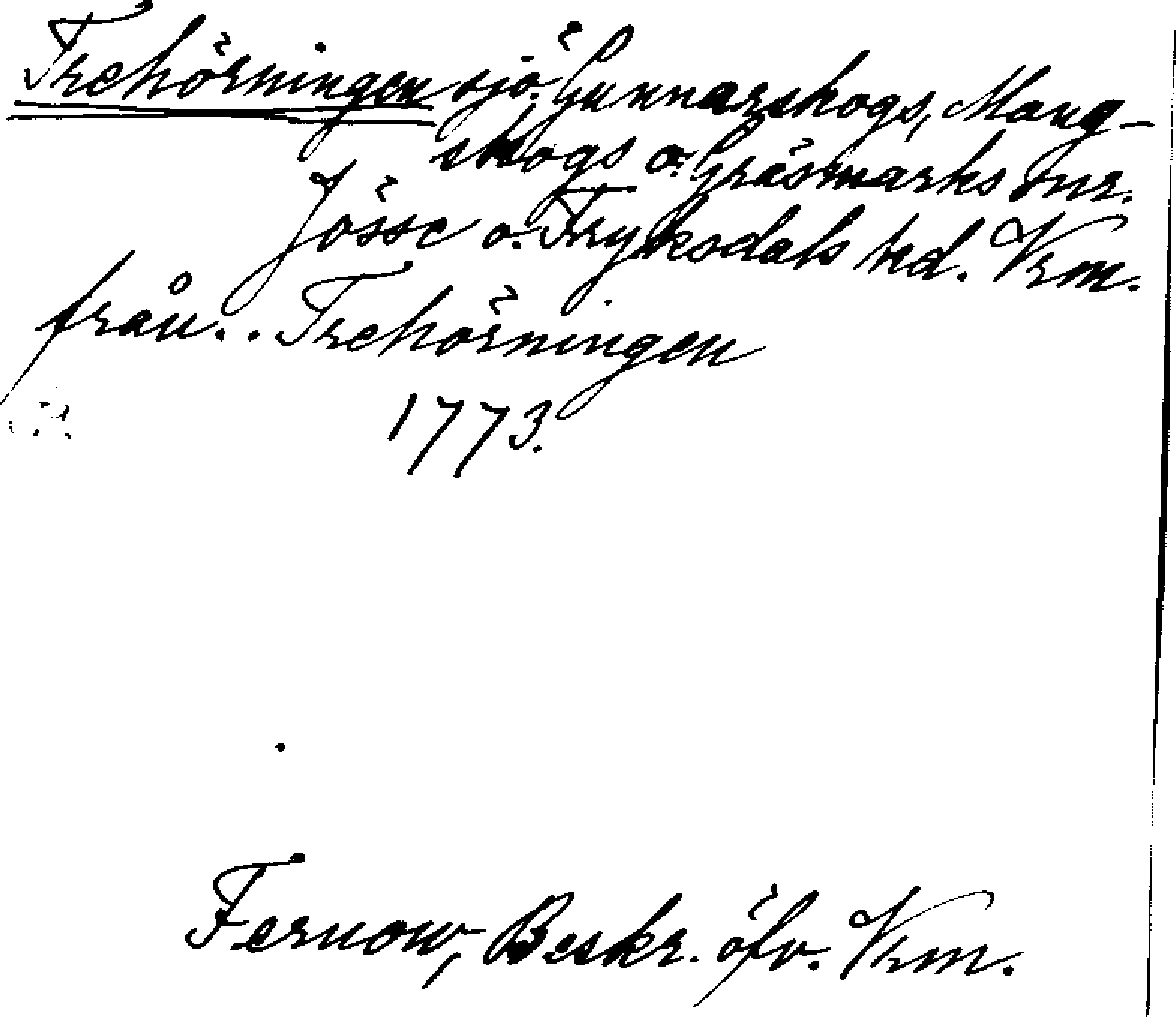 Trehörningen sjö Gunnarskogs, Mang-
skogs o. Gräsmarks snr.
Jösse o. Fryksdals hd. Vrm.
från.. Trehörningen
1773.
Fernow, Beskr. öfv. Vrm.